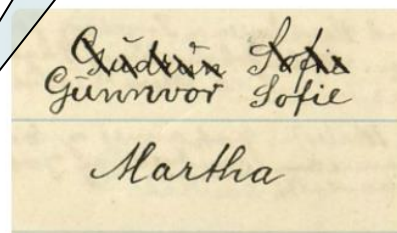 Gudrun Sofie
Gunnvor Sofie
Martha